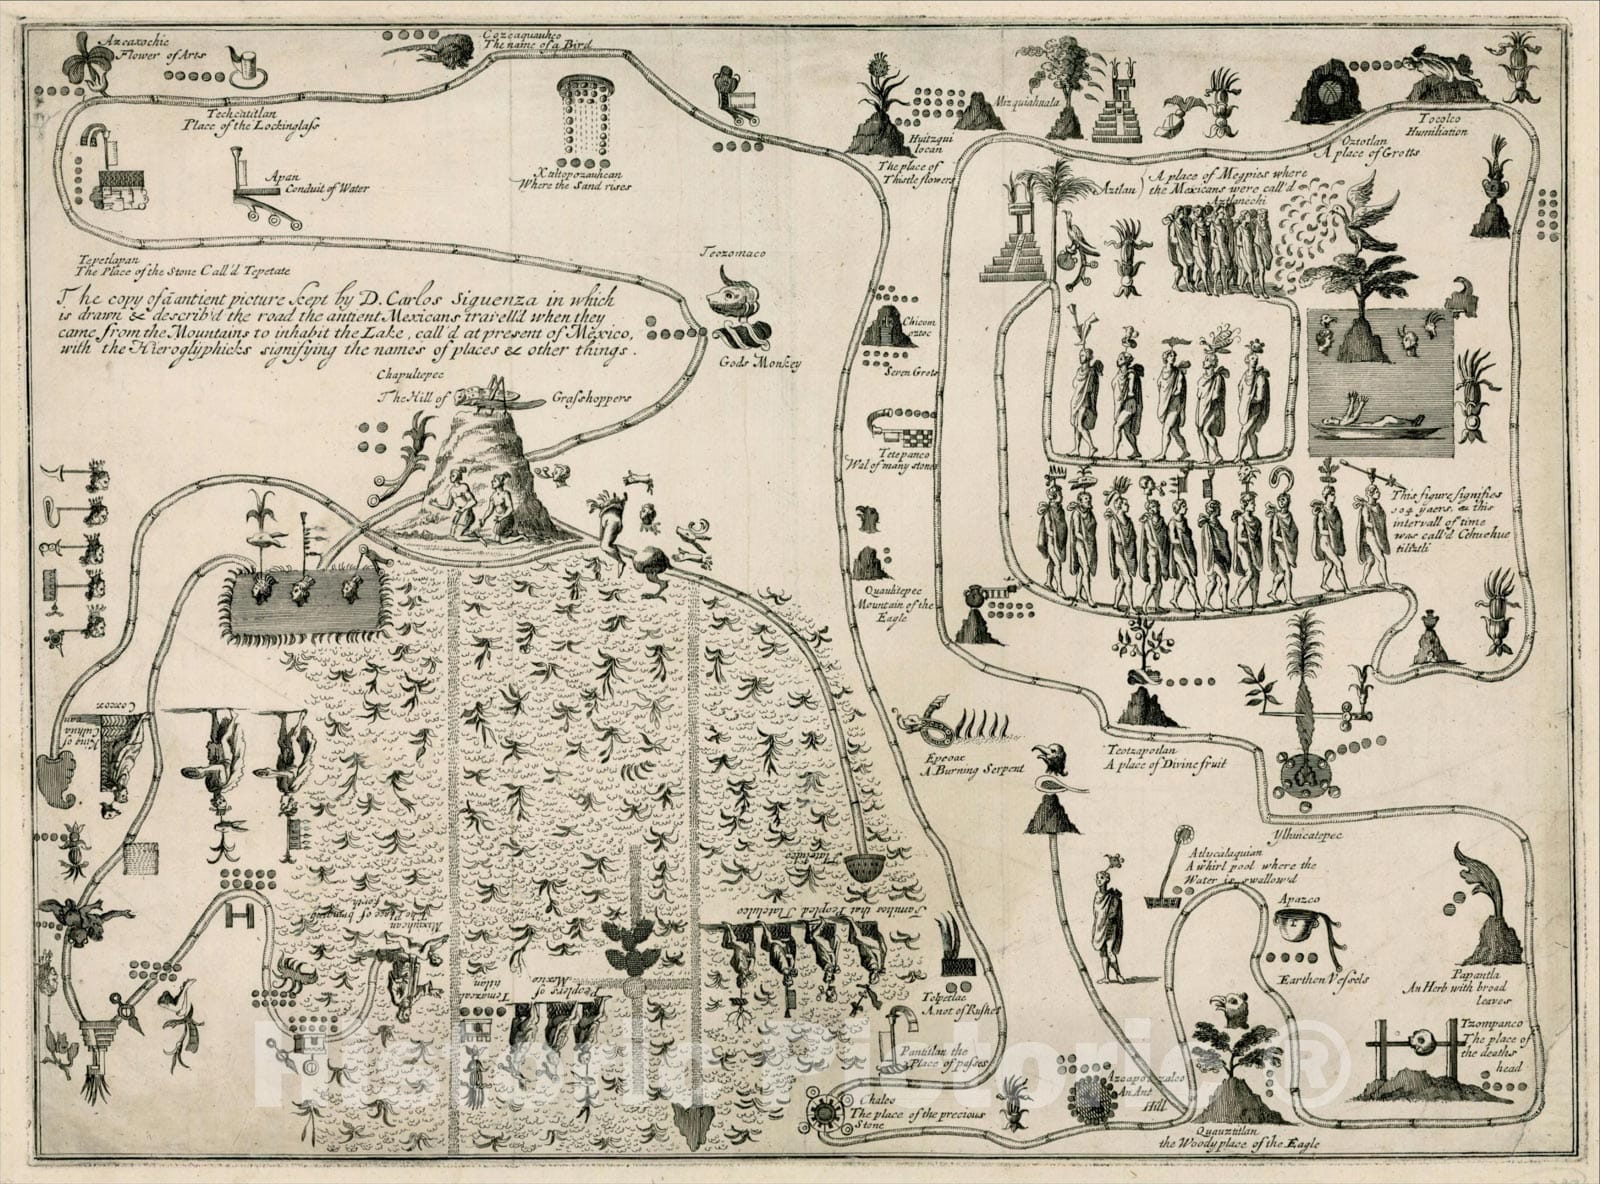 Azcaxochic
Flower of Arts
Cozcaquauhco
The name of a Bird
Techcatitlan
Place of the Lockinglass
Apan
Conduit of Water
Xaltopozauhcan
Where the Sand rises
Huitzqui
locan
The place of
Thistle flowers
Mizquiahuala
Oztotlan
A place of Grotts
Tocolco
Humiliation
Aztlan
A place of Megpies where
the Mexicans were call'd
Aztlanechi
Tepetlapan
The Place of the Stone Call'd Tepetate
The copy of a antient picture kept by D. Carlos Siguenza in which
is drawn & describ'd the road the antient Mexicans travell'd when they
came from the Mountains to inhabit the Lake, call'd at present of Mexico,
with the Hieroglyphicks signifying the names of places & other things.
Teozomaco
Gods Monkey
Chapultepec
The Hill of Grasshoppers
Chicom
oztoc
Seven Grots
Tetepanco
Wal of many stones
Quauhtepec
Mountain of the
Eagle
This figure signifies
104 yaers, & this
intervall of time
was call'd Cehuehue
tilitzli
Epcoac
A Burning Serpent
Teotzapotlan
A place of Divine fruit
Ylhuicatepec
Coxcox
King of
Culhua
can
Atlycalaquian
A whirl pool where the
Water is swallow'd
Apazco
Earthen Vessels
Papantla
An Herb with broad
leaves
Tzompanco
The place of
the deaths
head
Tlatelulco
Families that Peopled Tlatelulco
Mixiuhcan
The Place of bringing
forth
Peoplers of
Mexico
Tolpetlac
A not of Rushes
Pantitlan the
Place of passes
Chalco
The place of the precious
Stone
Azcapotzalco
An Ant
Hill
Quauztitlan
the Woody place of the Eagle
Historic Pictoric®